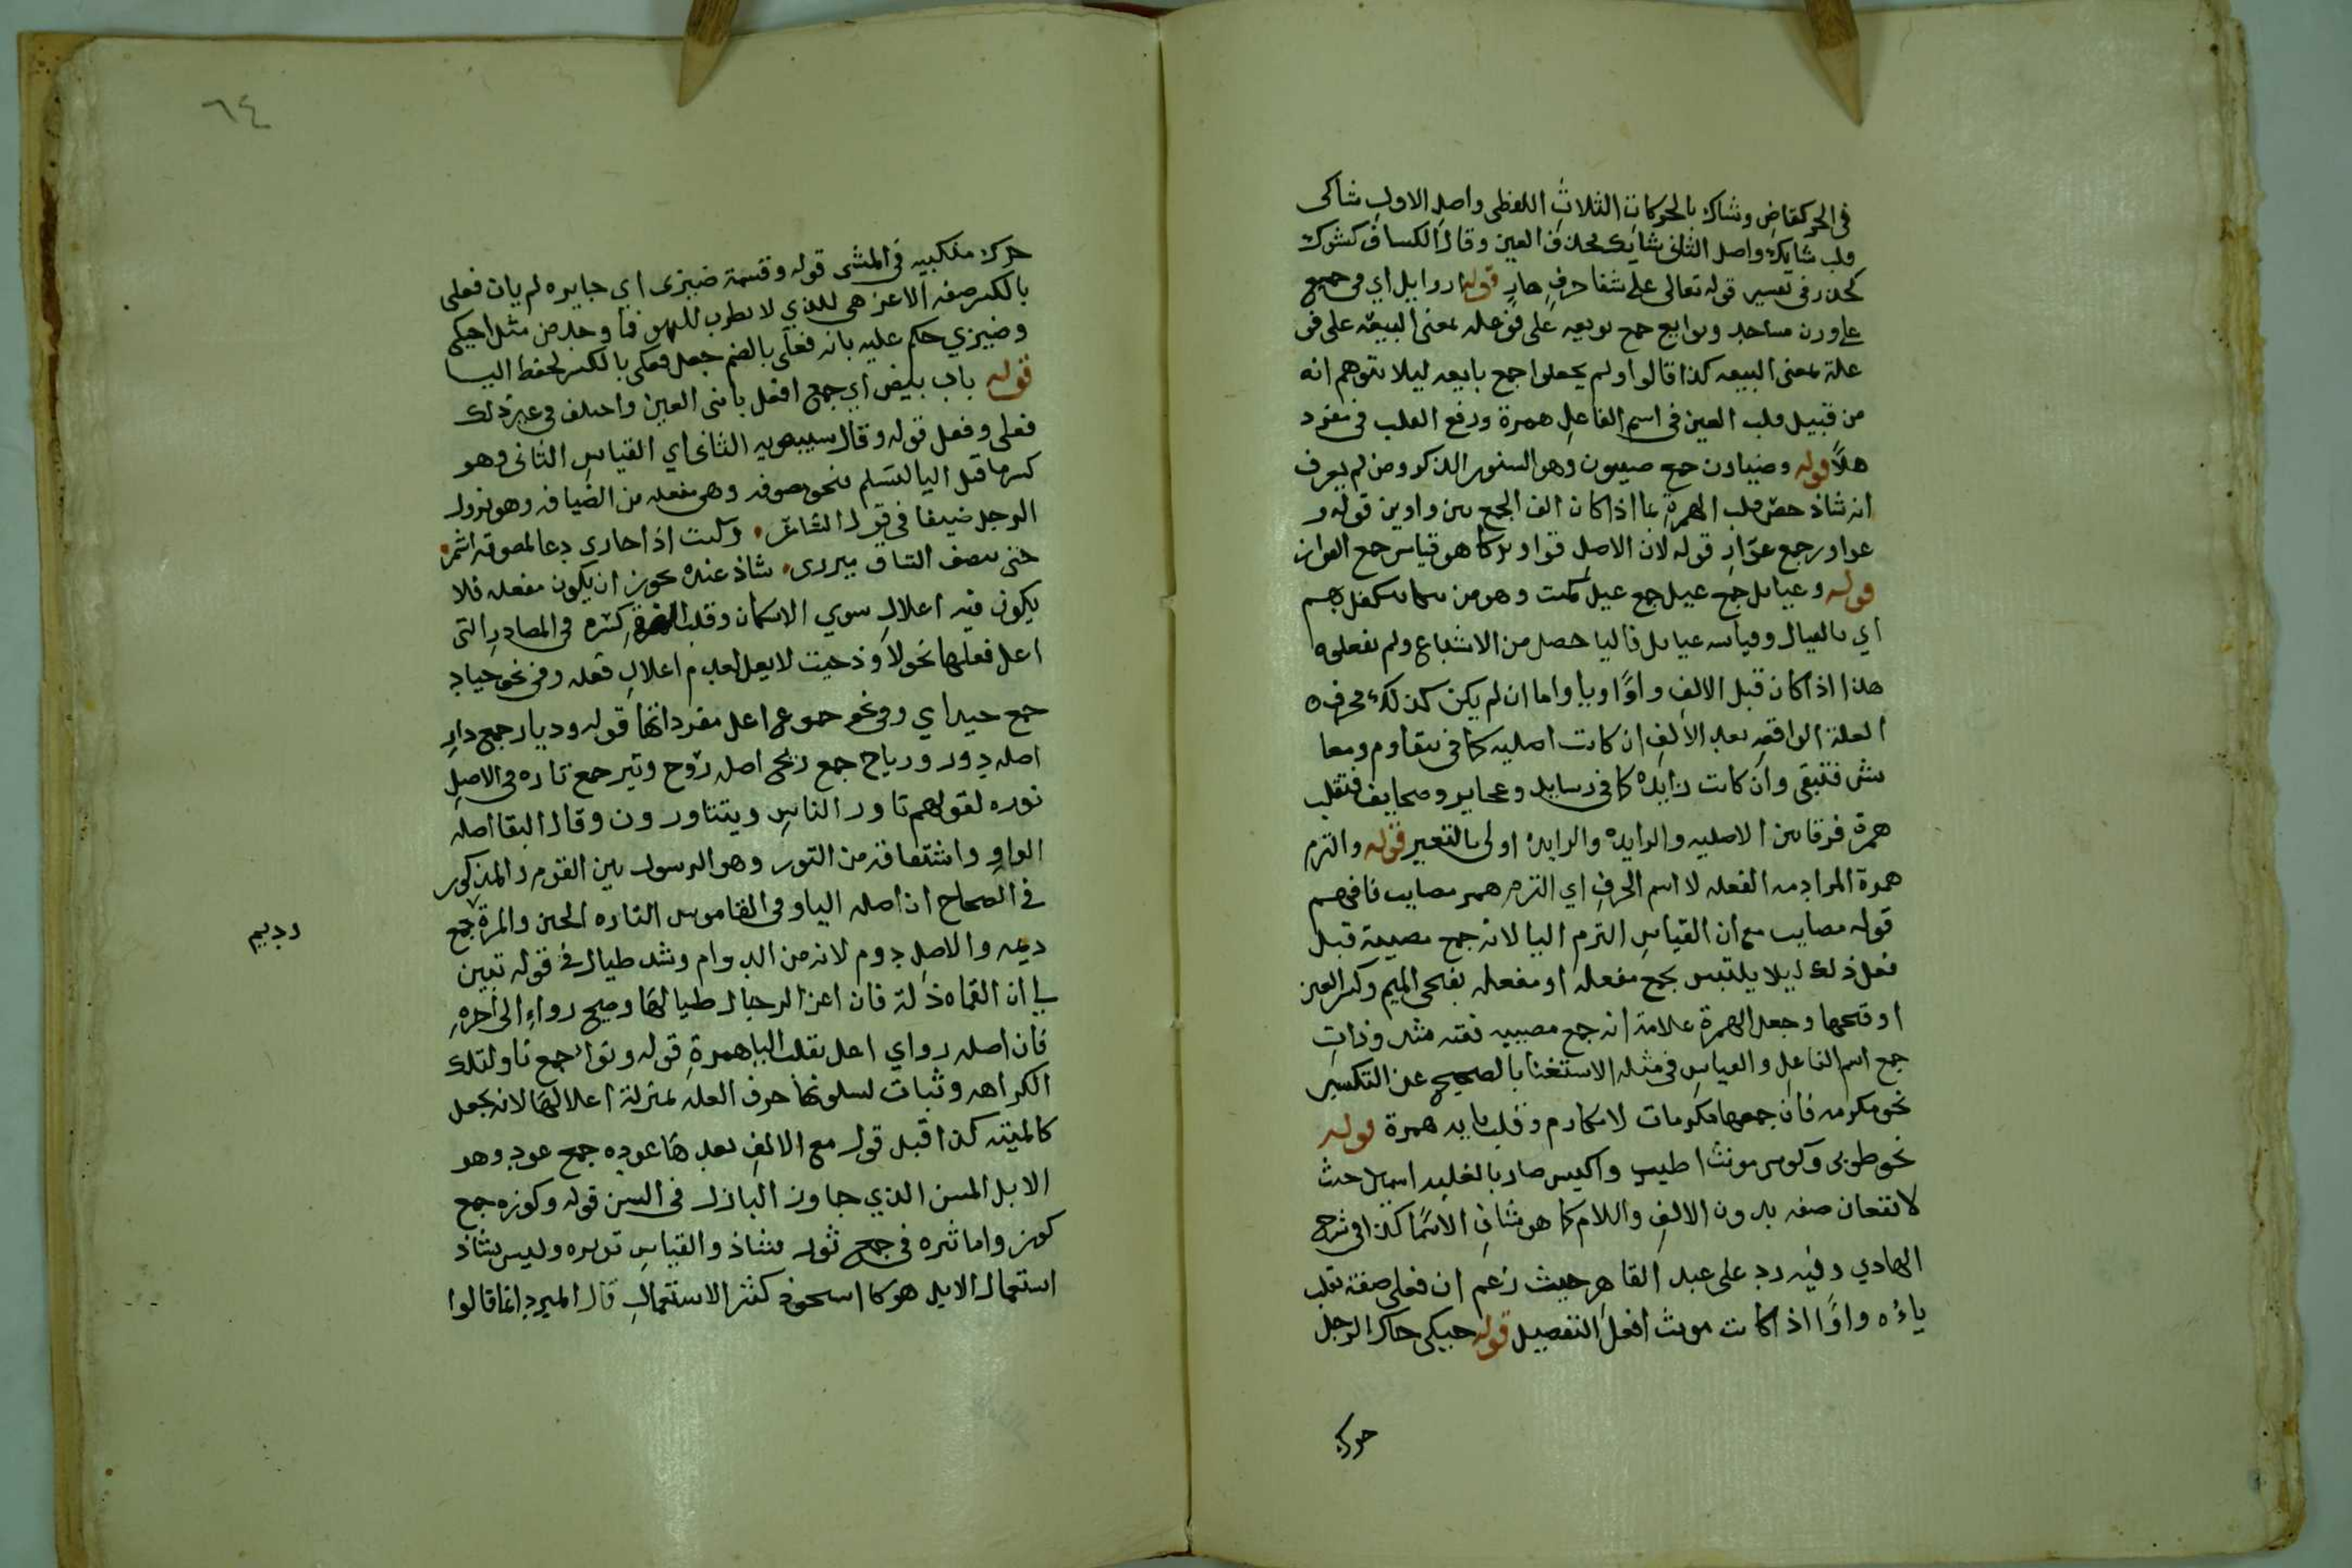 في الجر كقاض وشاك بالحركات الثلاث اللفظى واصل الاول شاكى
قلب شايك واصل الثانى شايك محذف العين وقال الكساف كشوك
كحدر فى تفسير قوله تعالى على شفا جرف هار قوله اوايل اي فى جميع
على وزن مساجد وبوايع جمع بويعه على فوعله بمعنى البيعة على فو
علة بمعنى البيعه كذا قالوا ولم يجعلوا جمع بايعه ليلا يتوهم انه
من قبيل قلب العين فى اسم الفاعل همزة ورفع القلب فى مفرد
هلاً قوله وضياون جمع ضيون وهو السنور الذكر ومن لم يعرف
انه شاذ خص قلب الهمزة بما اذا كان الف الجمع بين واوين قوله و
عواور جمع عوّار قوله لان الاصل قواوير كما هو قياس جمع العوار
قوله وعيايل جمع عيل جمع عيل كميت وهو من يتكفل بهم
اي بالعيال وقياسه عيايل فاليا حصل من الاشباع ولم يفعلوه
هذا اذا كان قبل الالف واوًا او يا واما ان لم يكن كذلك فحرف
العلة الواقعه بعد الالف ان كانت اصليه كما فى مقاوم ومعا
يش فتبقى وان كانت زايدة كما فى رسايل وعجايز وصحايف فتقلب
همزة فرقا بين الاصليه والزايدة والزايدة اولى بالتغيير قوله والتزم
همزة المراد به الفعله لا اسم الحرف اي التزم همز مصايب فافهم
قوله مصايب مع ان القياس التزم اليا لانه جمع مصيبة قبل
فعل ذلك ليلا يلتبس بجمع مفعله او مفعله بفتحى الميم وكسر العين
او فتحها وجعل الهمزة علامة انه جمع مصيبه فقه مثله وذات
جمع اسم الفاعل والقياس فى مثله الاستغنا بالصحيح عن التكسير
نحو مكرمه فان جمعها مكرمات لا مكارم وقلب يايه همزة قوله
نحو طوبى وكوسى مونث اطيب واكيس صار بالغلبه اسمين حيث
لا تقعان صفه بدون الالف واللام كما هو شان الاسما كذا فى شرح
الهادي وفيه رد على عبد القاهر حيث زعم ان فعلى صفة تقلب
ياءه واوًا اذا كانت مونث افعل التفضيل قوله حيكى حاك الرجل
حرك
٦٤
حرك منكبيه فى المشى قوله وقسمة ضيزى اي جايره لم يات فعلى
بالكسر صفه الا عزهى للذي لا يطرب للهو فما وجد من مثل حيكى
وضيزي حكم عليه بانه فعلى بالضم جعل فعلى بالكسر لحفظ اليا
قوله باب بيض اي جمع افعل يائى العين واختلف فى غير ذلك
فعلى وفعل قوله وقال سيبويه الثانى اي القياس الثانى وهو
كسر ما قبل اليا لتسلم فنحو مضوفه وهى مفعله من الضيافه وهو نزول
الرجل ضيفا فى قول الشاعر وكنت اذا جارى دعا لمضوفة اشمر
حتى ينصف الساق ميزرى شاذ عنده يجوز ان يكون مفعله فلا
يكون فيه اعلال سوي الاسكان وقلب كسره فى المصادر التى
اعل فعلها نحو لاوذ حيث لا يعل لعدم اعلال فعله وفى نحو جياد
جمع جيد اي وفى نحو جموع اعل مفرداتها قوله وديار جمع دار
اصله دور ورياح جمع ريح اصله روح وتير جمع تاره فى الاصل
توره لقولهم تاور الناس ويتتاورون وقال البقا اصله
الواو واشتقاقه من التور وهو الرسول بين القوم والمذكور
فى الصحاح ان اصله اليا وفى القاموس التاره الحين والمرة جمع
وديم
ديمه والاصل دوم لانه من الدوام وشذ طيال فى قوله تبين
لى ان القماه ذلة فان اعز الرجال طيالها وصح رواء الى اخره
فان اصله رواي اعل بقلب اليا همزة قوله ونواء جمع ناو لتلك
الكراهه وثبات لسلونها حرف العله بمنزلة اعلالها لانه يجعل
كالميته كذا قبل قوله مع الالف بعدها عوده جمع عود وهو
الابل المسن الذي جاوز البازل فى السن قوله وكوزه جمع
كوز واما ثيره فى جمع ثور فشاذ والقياس ثوره وليس بشاذ
استعمال الابل هو كما استحوذ كثير الاستعمال قال المبرد انما قالوا